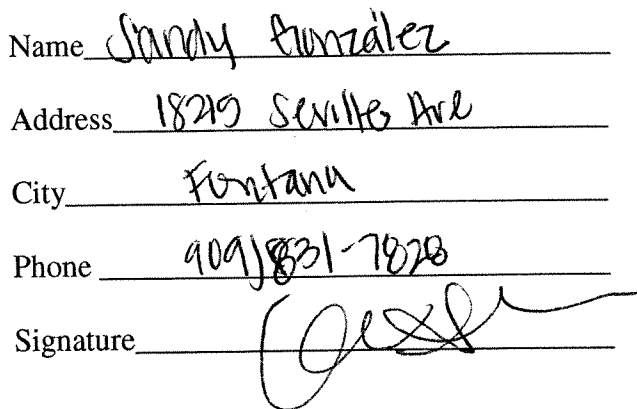 Name Sandy González
Address 18219 Seville Ave
City Fontana
Phone 909)831-7828
Signature